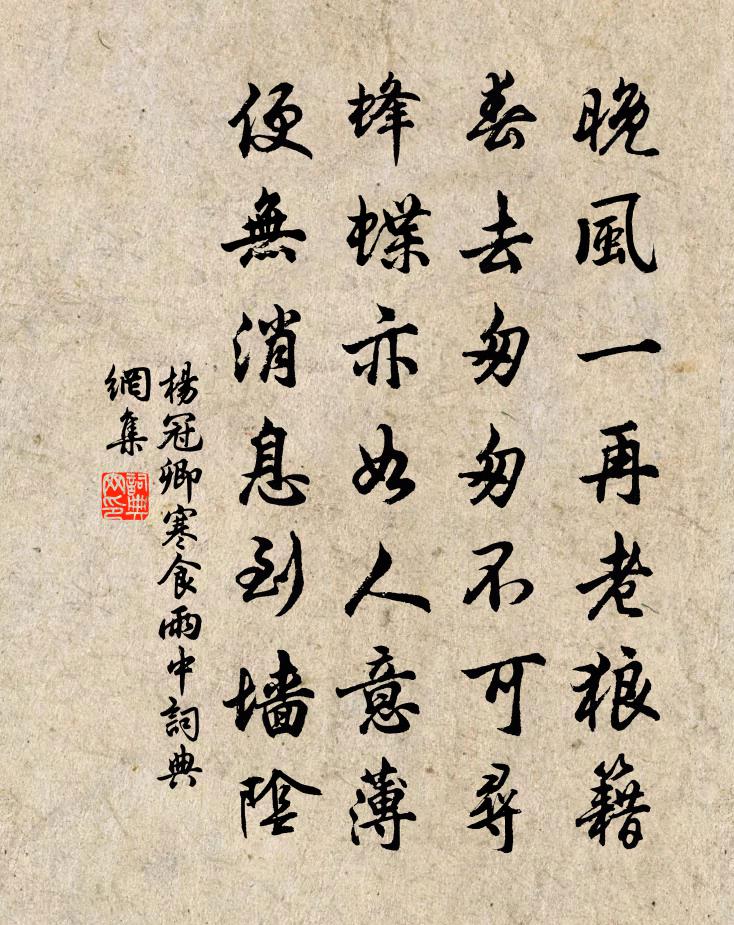 晚風一再老狼籍
春去匆匆不可尋
蜂蝶亦如人意薄
便無消息到墙陰
楊冠卿寒食雨中詞典
網集
詞典
网印